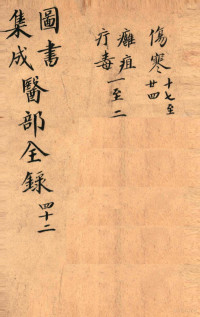 傷寒十七至廿四
癰疽
疔毒一至二
圖書
集成醫部全録四十二